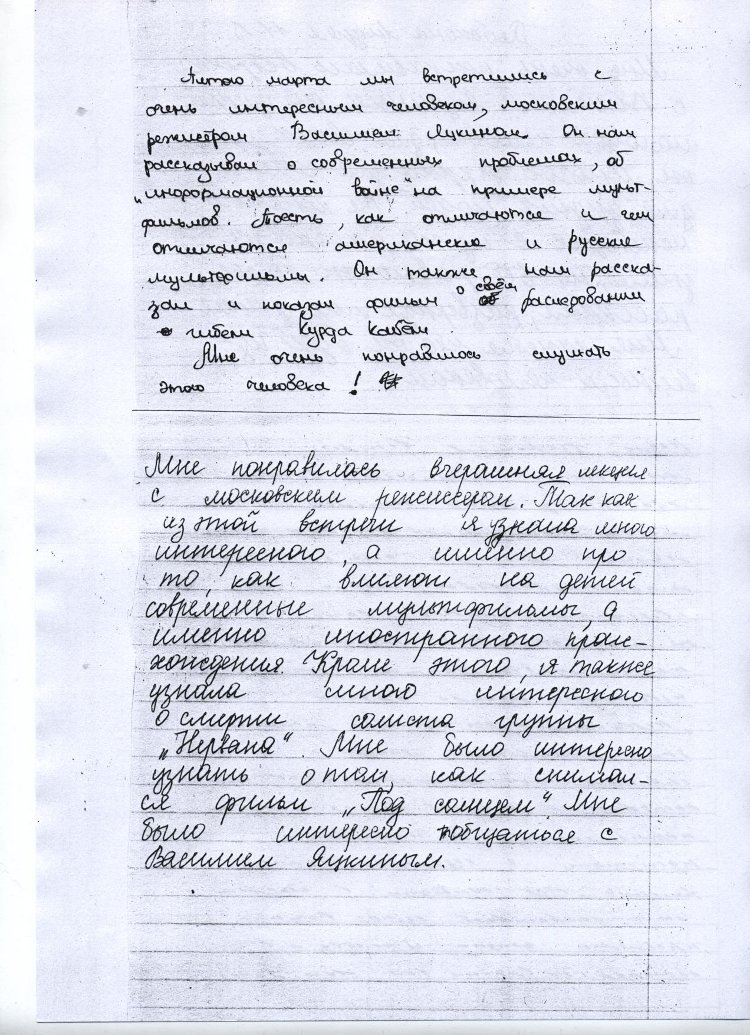 Пятого марта мы встретились с
очень интересным человеком, московским
режистёром Василием Яцкином. Он нам
рассказывал о современных проблемах, об
"информационной войне" на примере мульт-
фильмов. Тоесть, как отличаются и чем
отличаются американские и русские
мультфильмы. Он также нам расска-
зал и показал фильм о своём расчедовании
гибели Курда Кабейн.
Мне очень понравилось слушать
этого человека!
Мне понравилась вчерашняя лекция
с московским режиссером. Так как
из этой встречи я узнала много
интересного, а именно про
то, как влияют на детей
современные мультфильмы, а
именно иностранного проис-
хождения. Кроме этого, я также
узнала много интересного
о смерти солиста группы
"Нервана". Мне было интересно
узнать о том, как снимал-
ся фильм "Под солнцем". Мне
было интересно пообщаться с
Василием Яцкиным.